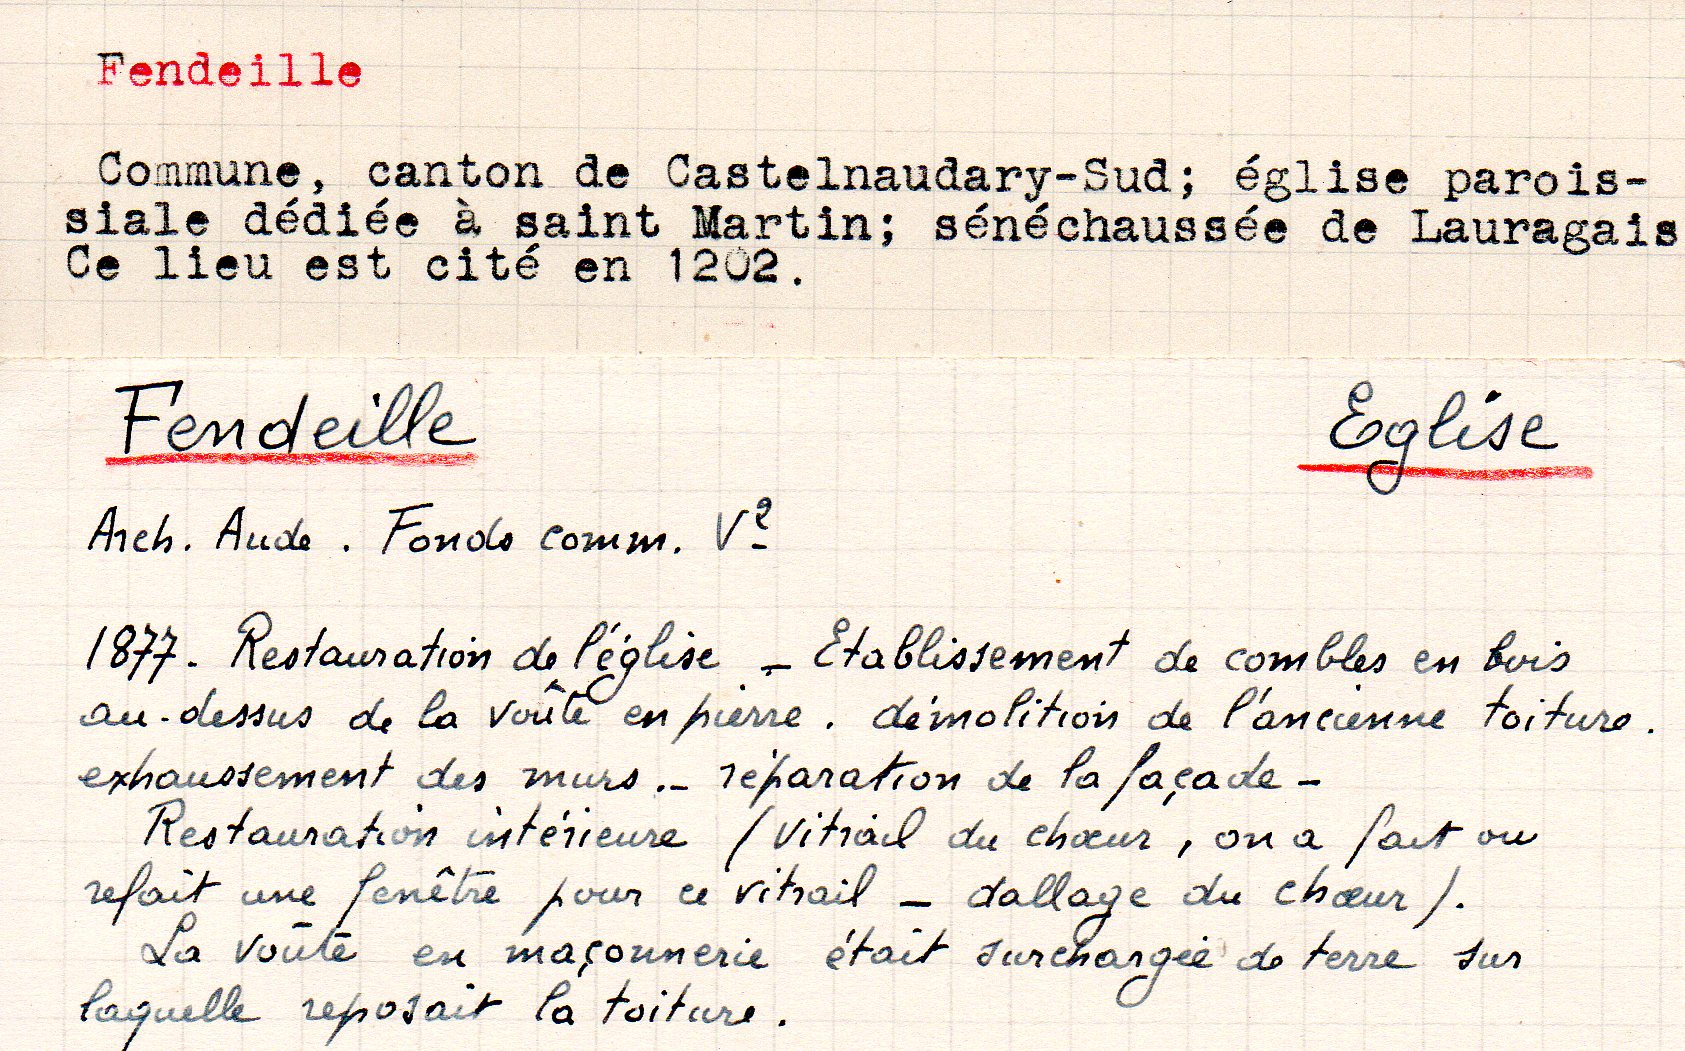 Fendeille
Commune, canton de Castelnaudary-Sud; église parois-
siale dédiée à saint Martin; sénéchaussée de Lauragais
Ce lieu est cité en 1202.
Fendeille Eglise
Arch. Aude. Fonds comm. V²
1877. Restauration de l'église _ Etablissement de combles en bois
au-dessus de la voûte en pierre. démolition de l'ancienne toiture.
exhaussement des murs._ réparation de la façade _
Restauration intérieure (vitrail du chœur, on a fait ou
refait une fenêtre pour ce vitrail _ dallage du chœur).
La voûte en maçonnerie était surchargée de terre sur
laquelle reposait la toiture.